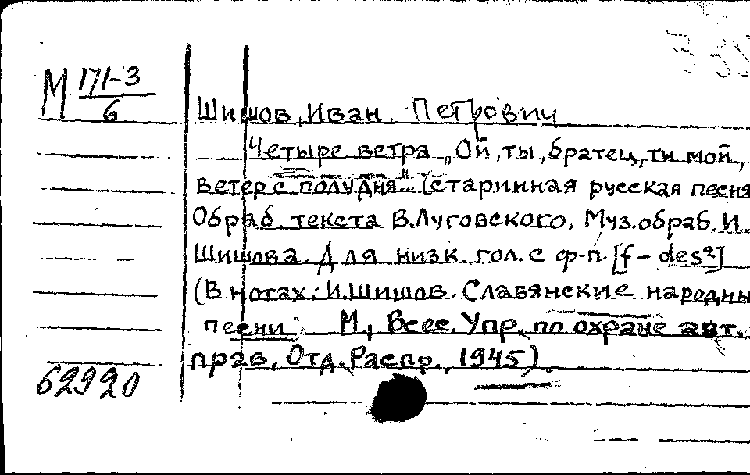 М 171-3
6
Шишов, Иван Петрович
Четыре ветра „Ой, ты, братец, ти мой,
ветер с полудня" (старинная русская песня
Обраб. текста В. Луговского. Муз. обраб. И.
Шишова. Для низк. гол. с ф-п. [f - des²]
(В нотах: И. Шишов. Славянские народны
песни. М., Всес. Упр. по охране авт.
прав, Отд. Распр., 1945).
62920